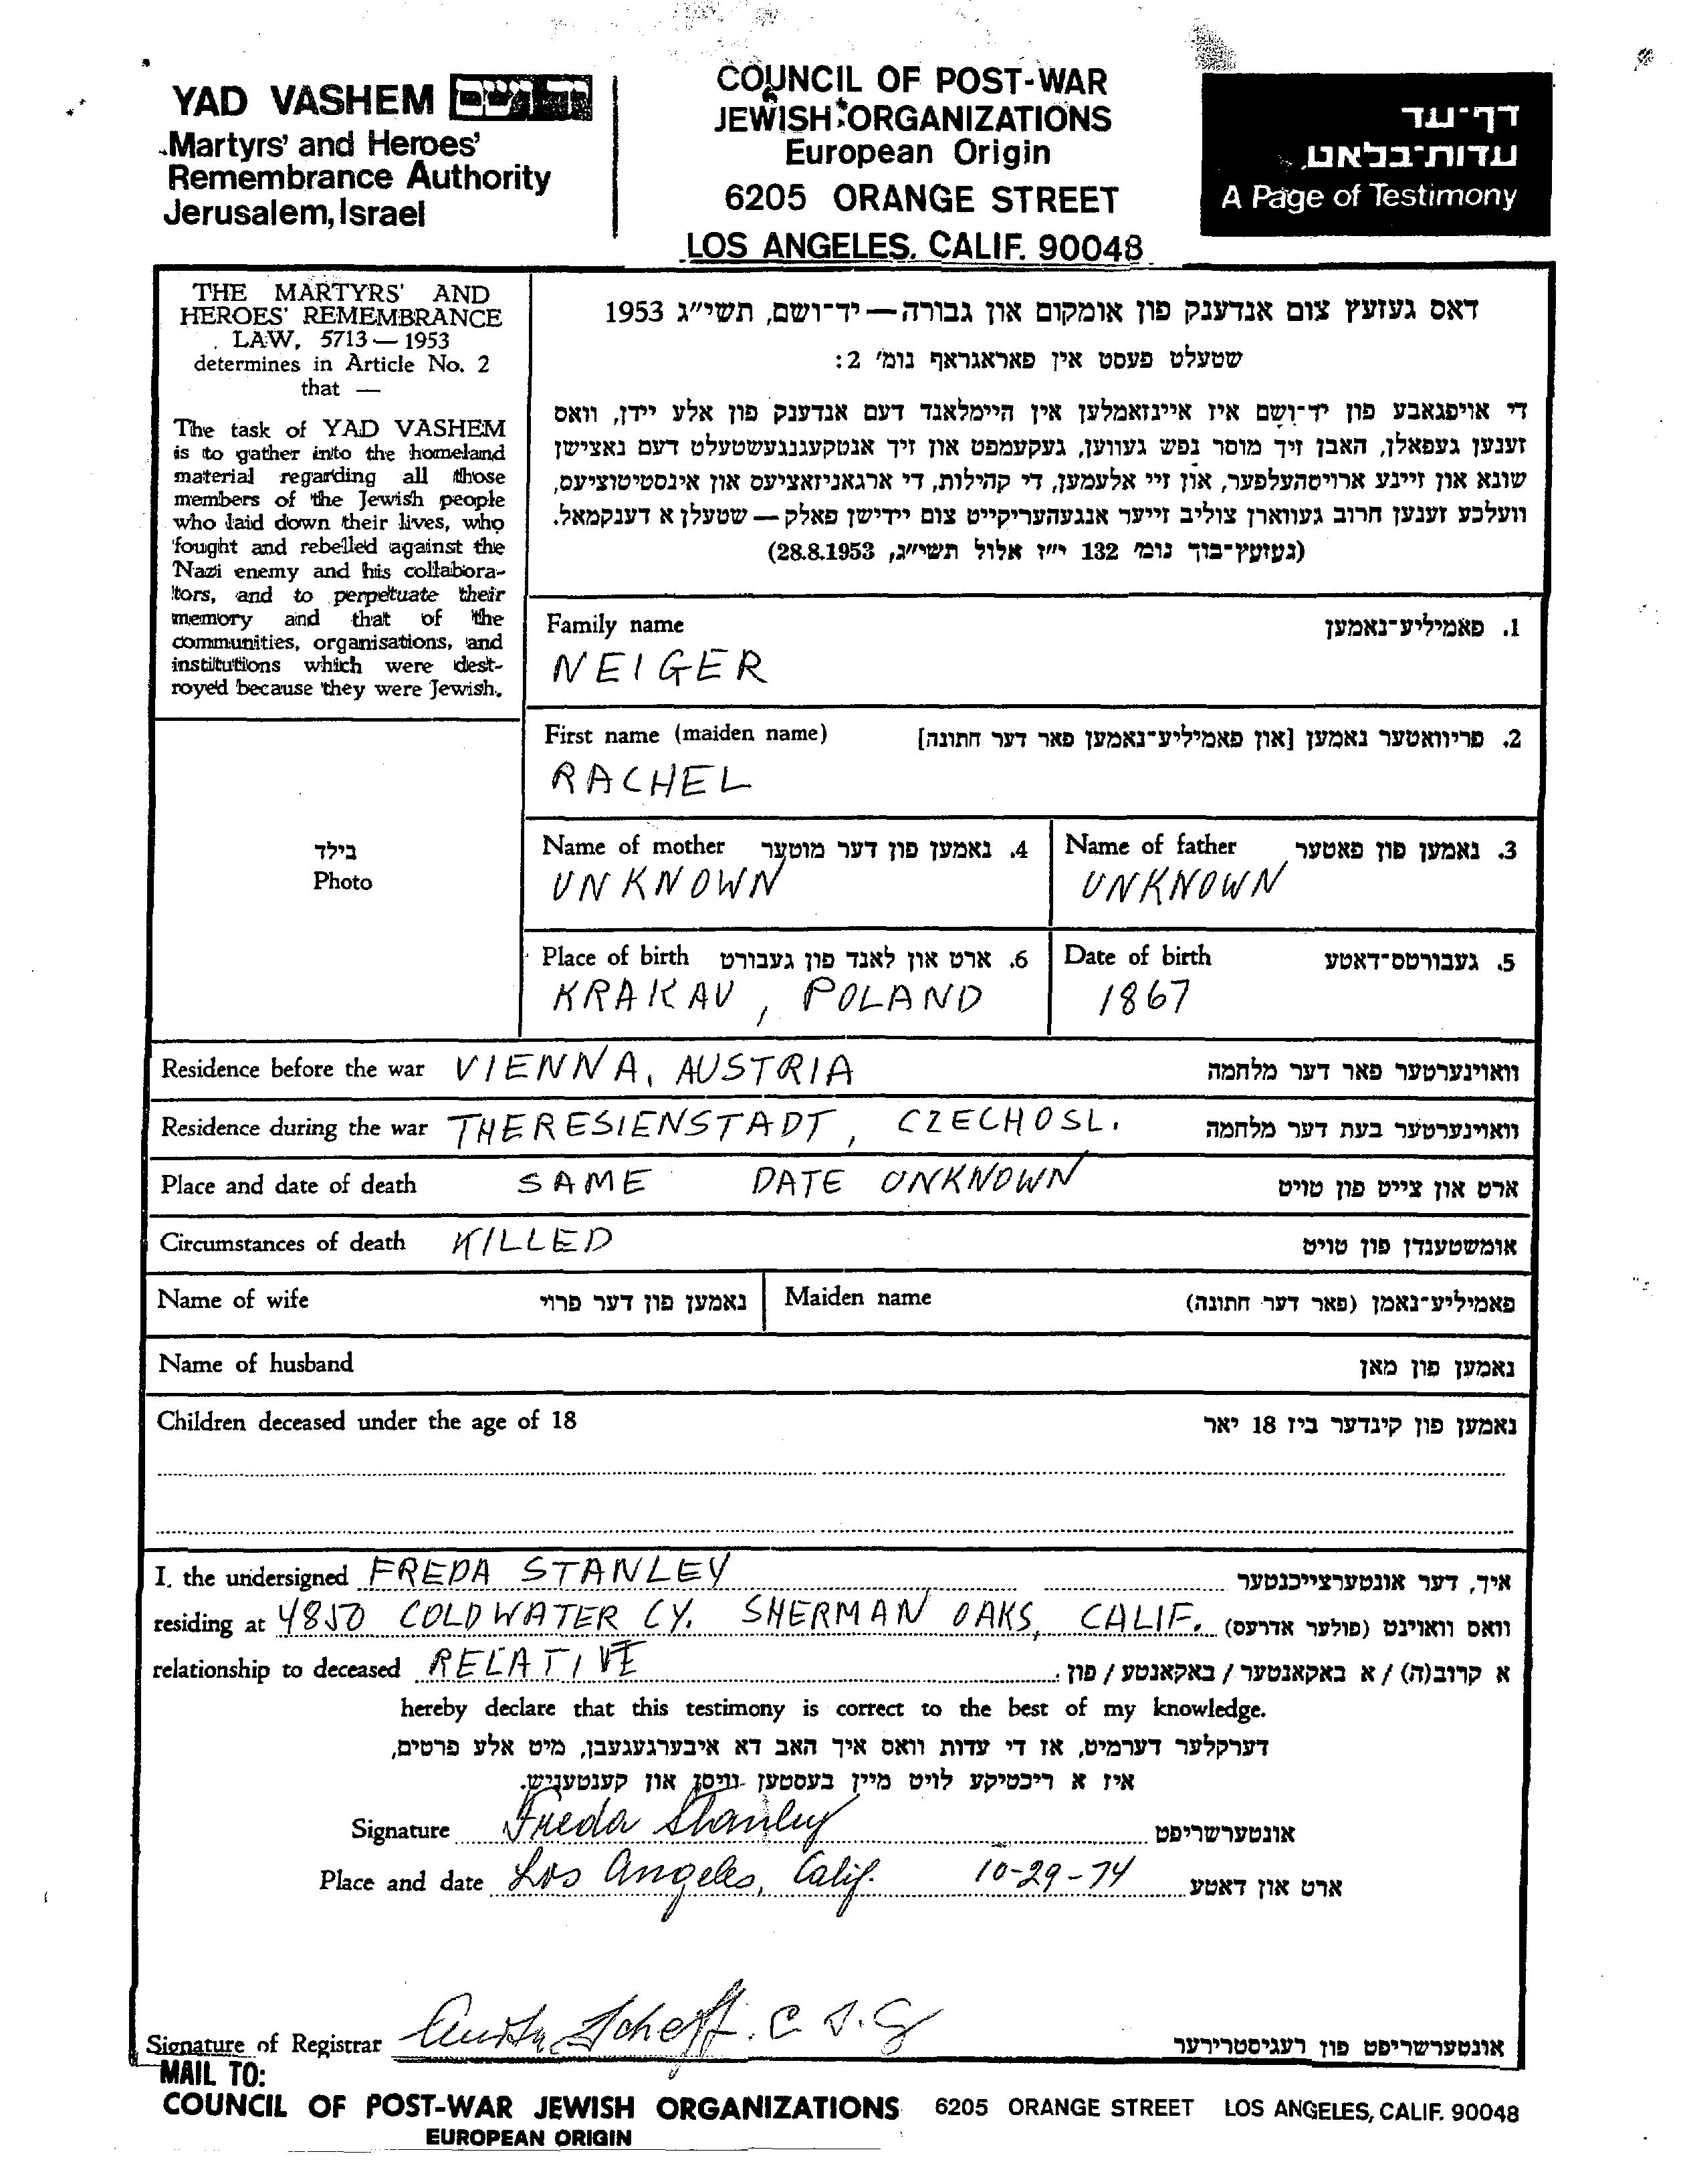 YAD VASHEM יד ושם
Martyrs' and Heroes'
Remembrance Authority
Jerusalem, Israel
COUNCIL OF POST-WAR
JEWISH ORGANIZATIONS
European Origin
6205 ORANGE STREET
LOS ANGELES, CALIF. 90048
דף־עד
עדות־בלאט
A Page of Testimony
THE MARTYRS' AND
HEROES' REMEMBRANCE
LAW, 5713 — 1953
determines in Article No. 2
that —
The task of YAD VASHEM
is to gather into the homeland
material regarding all those
members of the Jewish people
who laid down their lives, who
fought and rebelled against the
Nazi enemy and his collabora-
tors, and to perpetuate their
memory and that of the
communities, organisations, and
institutions which were dest-
royed because they were Jewish.
דאס געזעץ צום אנדענק פון אומקום און גבורה — יד־ושם, תשי״ג 1953
שטעלט פעסט אין פאראגראף נומ׳ 2:
די אויפגאבע פון יד־ושם איז איינזאמלען אין היימלאנד דעם אנדענק פון אלע יידן, וואס
זענען געפאלן, האבן זיך מוסר נפש געווען, געקעמפט און זיך אנטקעגנגעשטעלט דעם נאצישן
שונא און זיינע ארויסהעלפער, און זיי אלעמען, די קהילות, די ארגאניזאציעס און אינסטיטוציעס,
וועלכע זענען חרוב געווארן צוליב זייער אנגעהעריקייט צום יידישן פאלק — שטעלן א דענקמאל.
(געזעץ־בוך נומ׳ 132 י״ז אלול תשי״ג, 28.8.1953)
בילד
Photo
Family name 1. פאמיליע־נאמען
NEIGER
First name (maiden name) 2. פריוואטער נאמען [און פאמיליע־נאמען פאר דער חתונה]
RACHEL
Name of mother 4. נאמען פון דער מוטער
UNKNOWN
Name of father 3. נאמען פון פאטער
UNKNOWN
Place of birth 6. ארט און לאנד פון געבורט
KRAKAU, POLAND
Date of birth 5. געבורטס־דאטע
1867
Residence before the war VIENNA, AUSTRIA וואוינערטער פאר דער מלחמה
Residence during the war THERESIENSTADT, CZECHOSL. וואוינערטער בעת דער מלחמה
Place and date of death SAME DATE UNKNOWN ארט און צייט פון טויט
Circumstances of death KILLED אומשטענדן פון טויט
Name of wife נאמען פון דער פרוי Maiden name פאמיליע־נאמן (פאר דער חתונה)
Name of husband נאמען פון מאן
Children deceased under the age of 18 נאמען פון קינדער ביז 18 יאר
I, the undersigned FREDA STANLEY איך, דער אונטערצייכנטער
residing at 4850 COLDWATER CY. SHERMAN OAKS, CALIF. וואס וואוינט (פולער אדרעס)
relationship to deceased RELATIVE א קרוב(ה) / א באקאנטער / באקאנטע / פון
hereby declare that this testimony is correct to the best of my knowledge.
דערקלער דערמיט, אז די עדות וואס איך האב דא איבערגעגעבן, מיט אלע פרטים,
איז א ריכטיקע לויט מיין בעסטען וויסן און קענטעניש.
Signature Freda Stanley אונטערשריפט
Place and date Los Angeles, Calif. 10-29-74 ארט און דאטע
Signature of Registrar אונטערשריפט פון רעגיסטרירער
MAIL TO:
COUNCIL OF POST-WAR JEWISH ORGANIZATIONS 6205 ORANGE STREET LOS ANGELES, CALIF. 90048
EUROPEAN ORIGIN